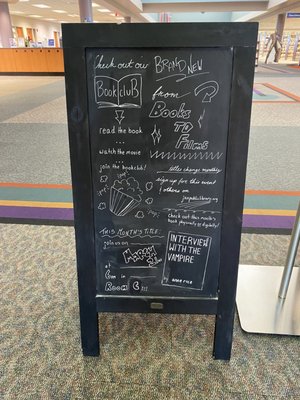 Check out our BRAND NEW
Book CluB
from
Books
To
Films
read the book
...
watch the movie
...
join the bookclub!
titles change monthly
sign up for this event
& others on
jocpubliclibrary.org
Check out this month's
book physically or digitally!
THIS MONTH'S TITLE:
join us on
March
at
6pm in
Room C!!!
INTERVIEW
WITH THE
VAMPIRE
anne rice